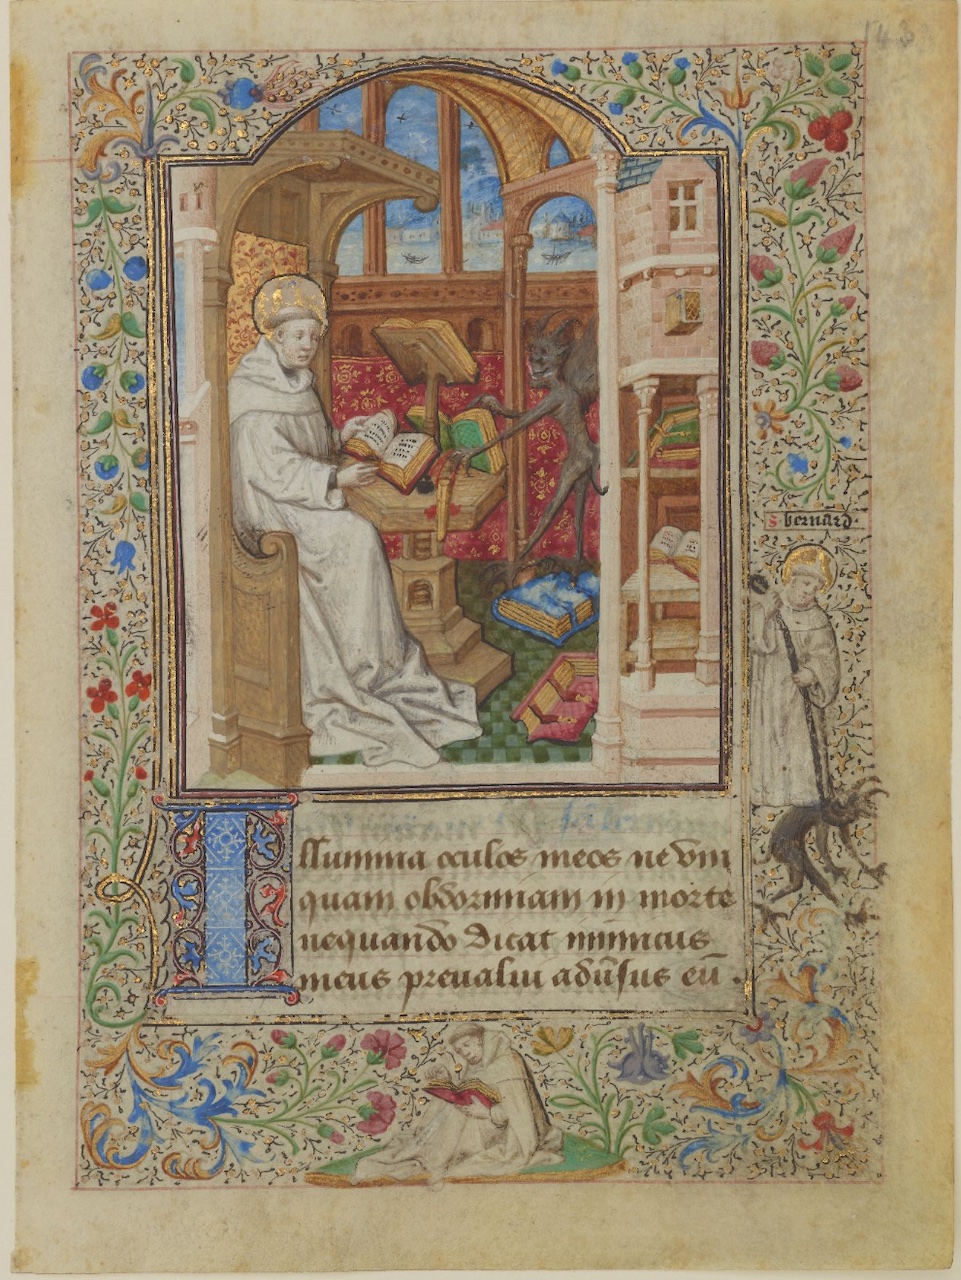 143
s bernard.
Illumina oculos meos ne vm
quam obdormiam in morte
nequando dicat inimicus
meus preualui aduſus eū.